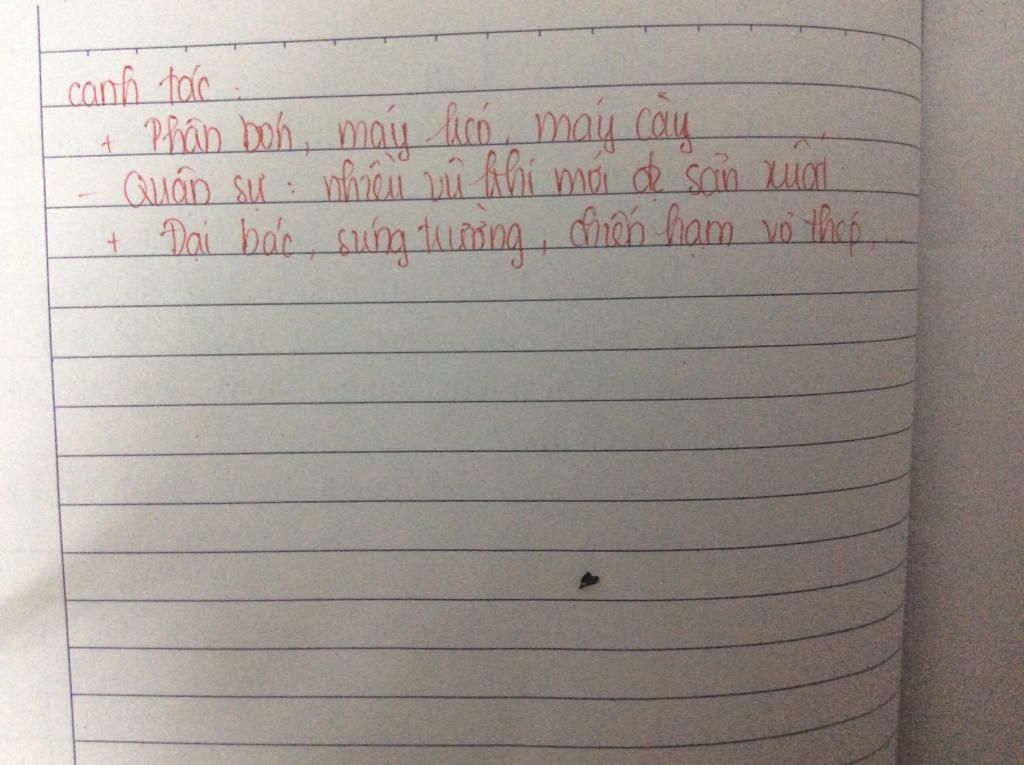 canh tác :
+ Phân bón, máy kéo, máy cày
- Quân sự : nhiều vũ khí mới đc sản xuất
+ Đại bác, súng trường, chiến hạm vỏ thép,...